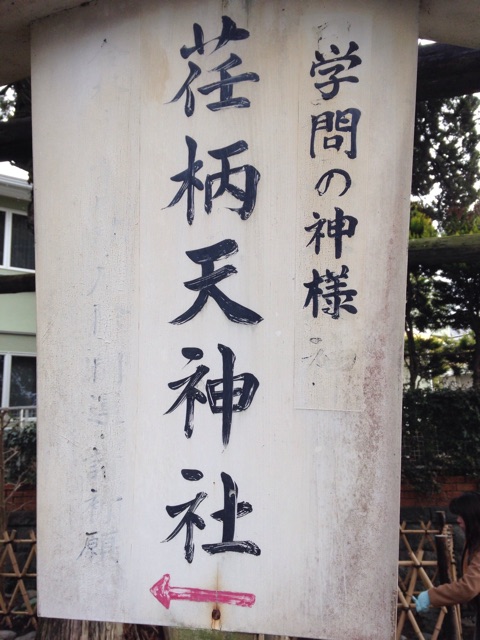 学問の神様
荏柄天神社